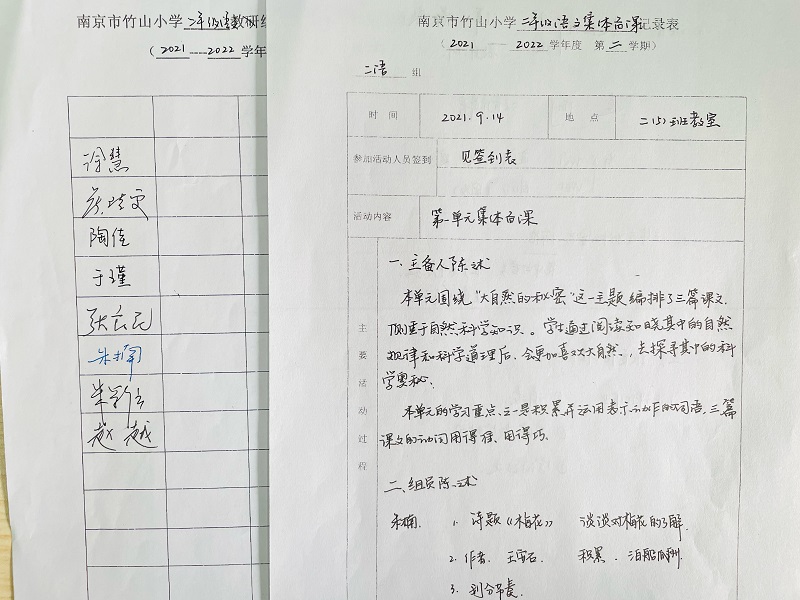 南京市竹山小学二年级语文教研组
（2021----2022学年
徐慧
陶佳
于瑾
赵越
南京市竹山小学二年级语文集体备课记录表
（2021 --- 2022学年度 第二学期）
二语 组
时 间 2021.9.14 地 点 二(5)班教室
参加活动人员签到 见签到表
活动内容 第一单元集体备课
主要活动过程
一.主备人陈述
本单元围绕“大自然的秘密”这一主题编排了三篇课文.
侧重于自然科学知识。学生通过阅读知晓其中的自然
规律和科学道理后、会更加喜欢大自然，去探寻其中的科
学奥秘.
本单元的学习重点之一是积累并运用表示动作的词语,三篇
课文的动词用得准、用得巧.
二、组员陈述
朱楠. 1. 诗题《梅花》 谈谈对梅花的了解.
2. 作者. 王安石. 积累. 泊船瓜洲
3. 划分节奏.